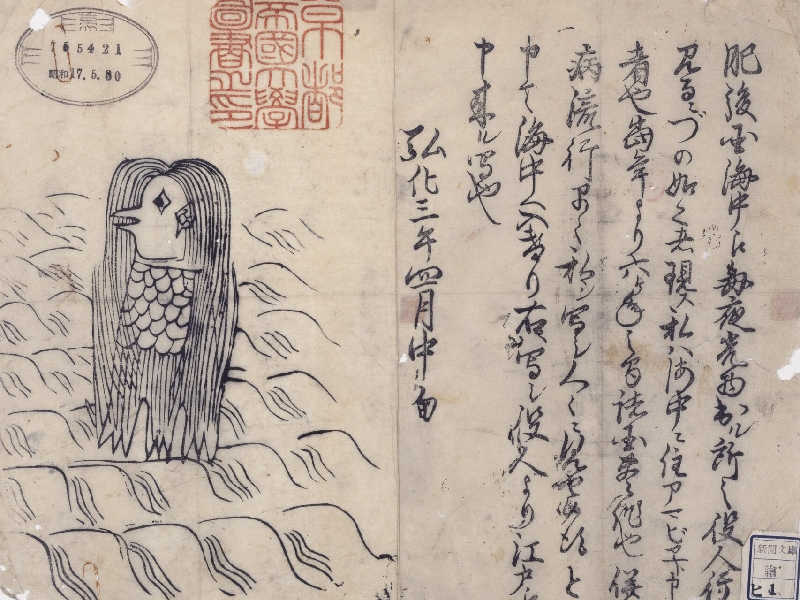 肥後国海中え毎夜光物出ル所之役人行
見るニづの如く者現ス私ハ海中ニ住アマビヱト申
者也当年より六ヶ年之間諸国豊作也併
病流行早々私シ写シ人々ニ見せ候得と
申て海中へ入けり右写シ役人より江戸え
申来ル写也
弘化三年四月中旬
京都
帝國大學
圖書之印
765421
昭和17.5.30
新聞文庫